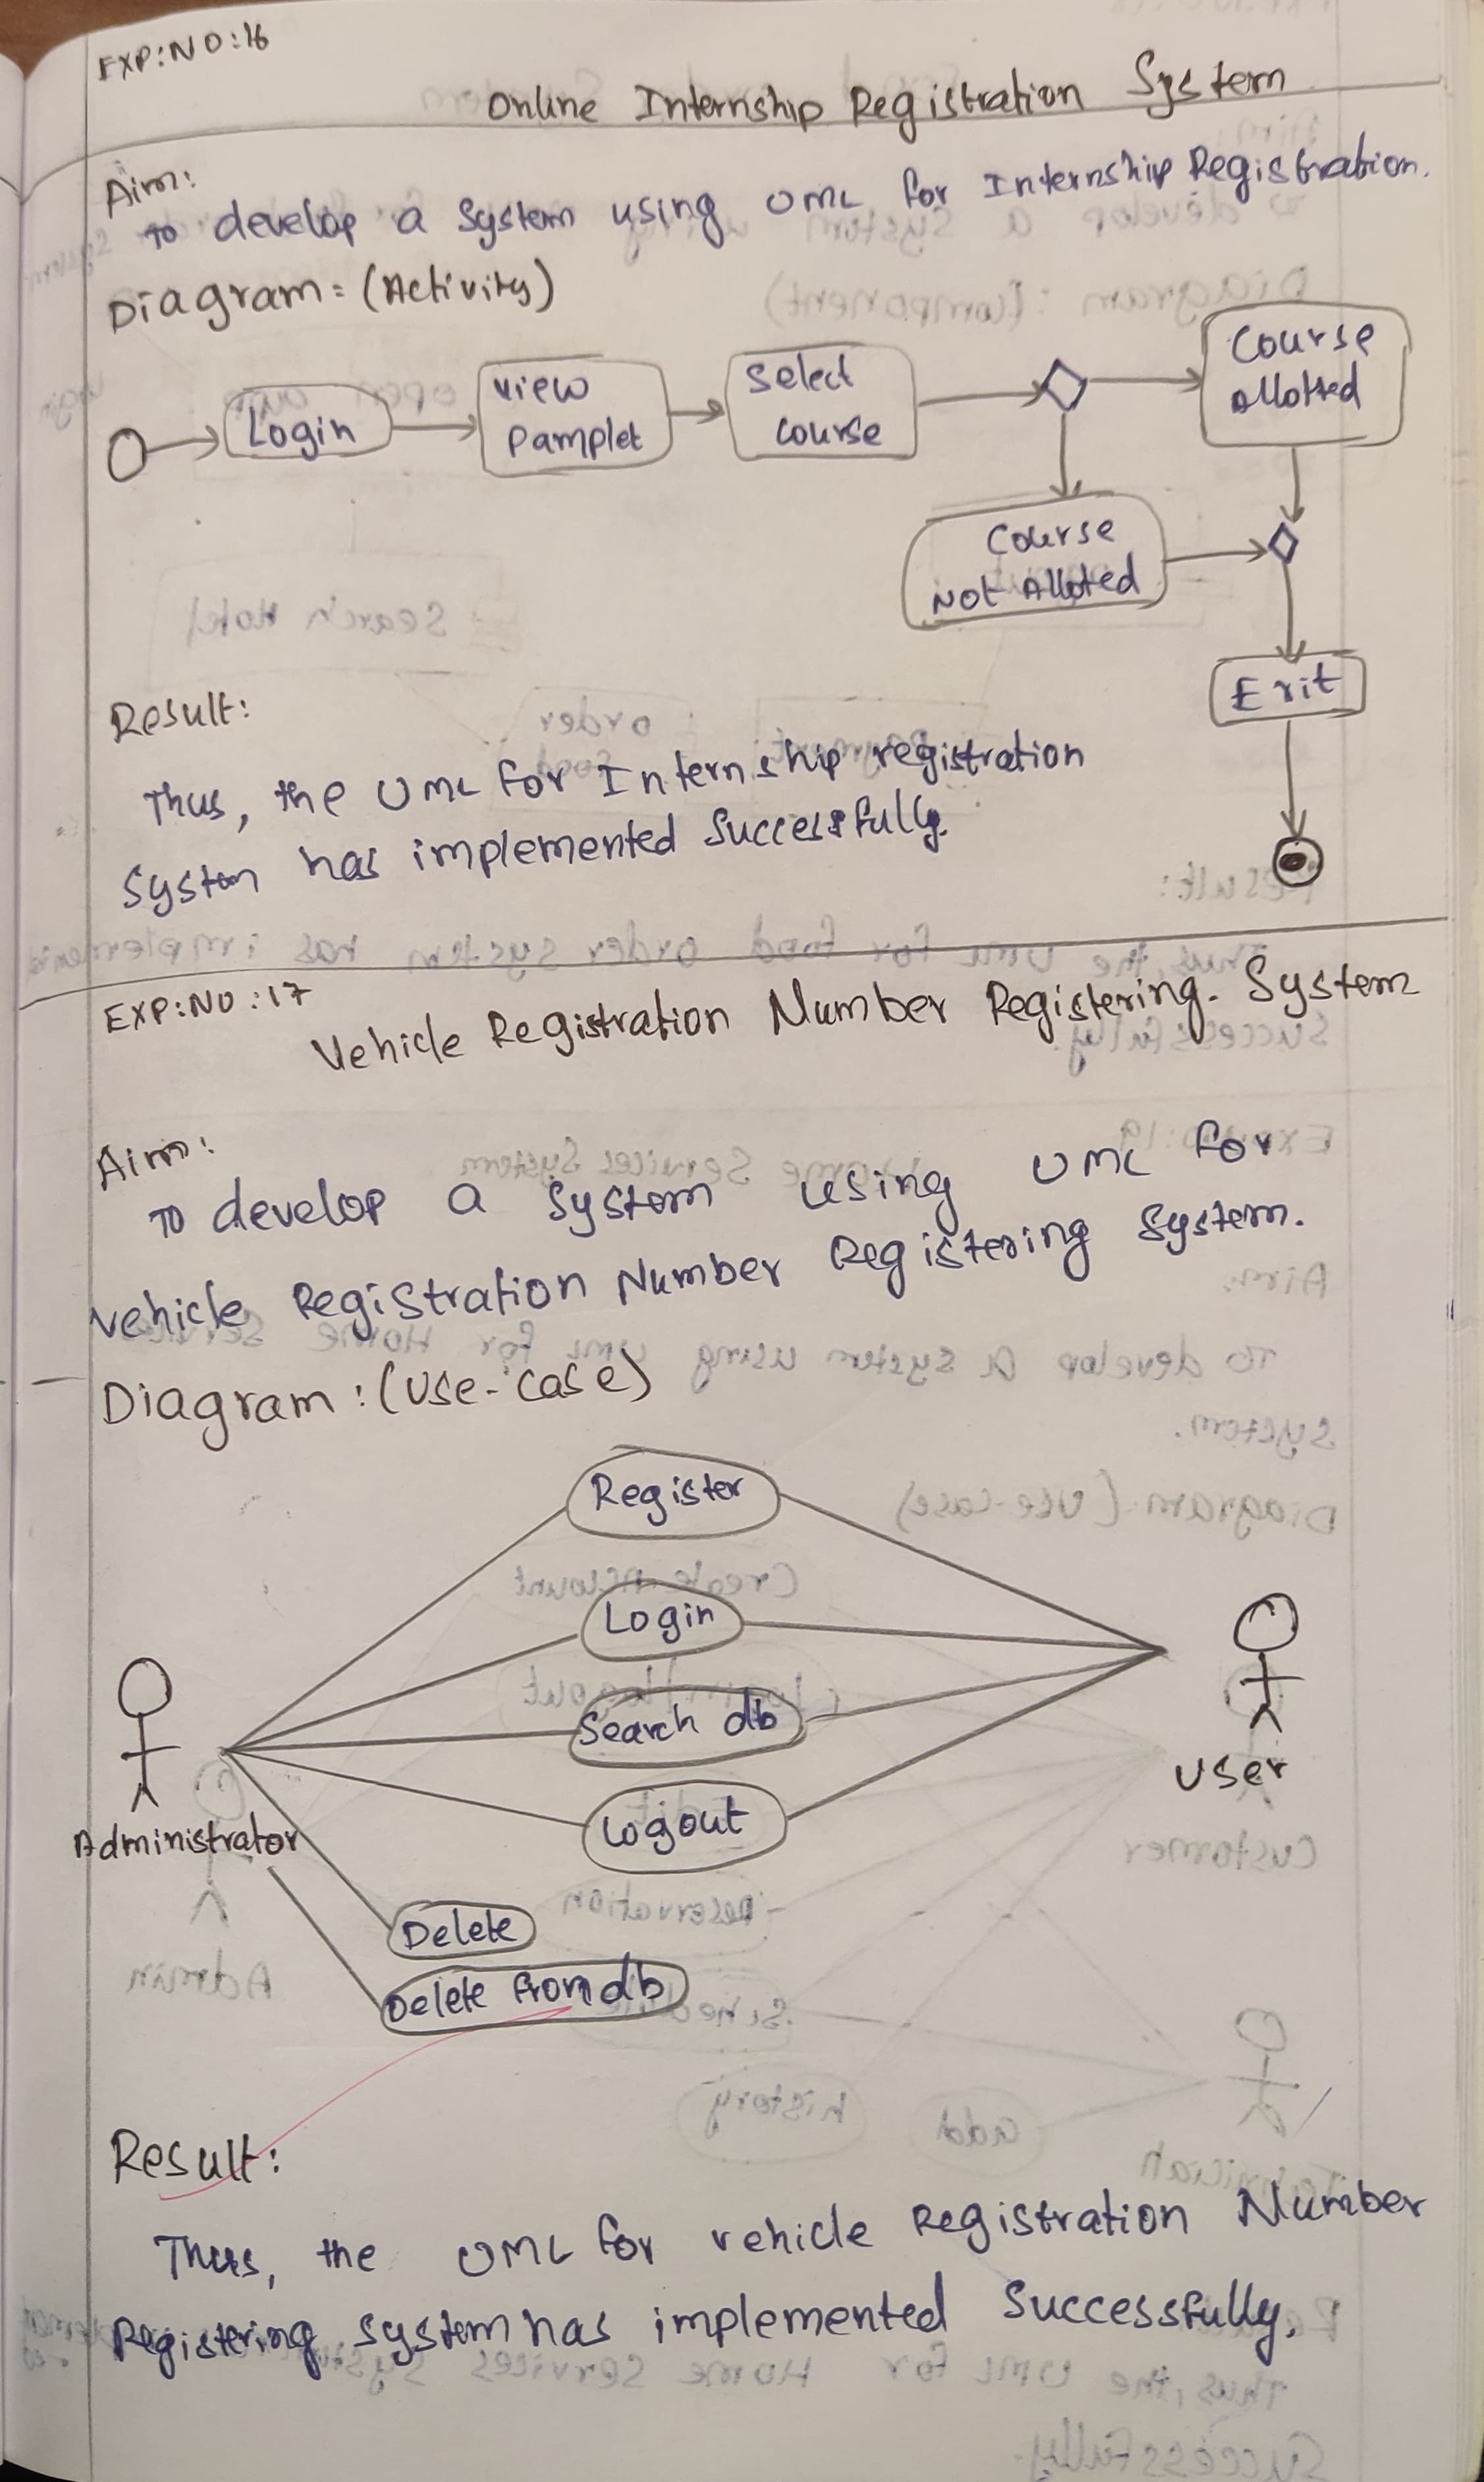 EXP:NO:16
Online Internship Registration System
Aim:
To develop a System using UML for Internship Registration.
Diagram: (Activity)
Login
View
Pamplet
Select
Course
Course
Allotted
Course
Not Alloted
Exit
Result:
Thus, the UML for Internship registration
System has implemented Successfully.
EXP:NO:17
Vehicle Registration Number Registering. System
Aim:
To develop a System using UML for
Vehicle Registration Number Registering System.
Diagram: (Use-Case)
Register
Login
Search db
Logout
Delete
Delete from db
Administrator
User
Result:
Thus, the UML for vehicle Registration Number
Registering System has implemented Successfully.